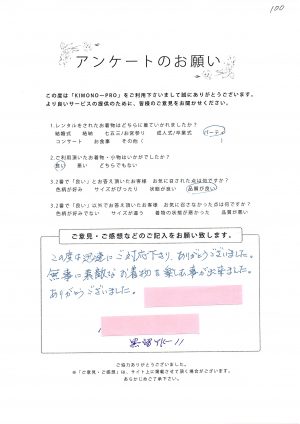 100
アンケートのお願い
この度は「KIMONO-PRO」をご利用下さいまして誠にありがとうございます。
より良いサービスの提供のために、皆様のご意見をお聞かせください。
1.レンタルをされたお着物はどちらに着ていかれましたか?
結婚式 結納 七五三/お宮参り 成人式/卒業式 パーティ
コンサート お食事 その他(
2.ご利用頂いたお着物・小物はいかがでしたか?
良い 悪い どちらでもない
3.2番で「良い」とお答え頂いたお客様 お気に召された点は何ですか?
色柄が好み サイズがぴったり 状態が良い 品質が良い
3.2番で「良い」以外でお答え頂いたお客様 お気に召さなかった点は何ですか?
色柄が好みでない サイズが違う 着物の状態が悪かった 品質が悪い
ご意見・ご感想などのご記入をお願い致します。
この度は迅速にご対応下さり、ありがとうございました。
無事に素敵なお着物を楽しむ事が出来ました。
ありがとうございました。
ご協力ありがとうございました。
※「ご意見・ご感想」は、サイト上に掲載させて頂く場合がございます。
あらかじめご了承下さい。